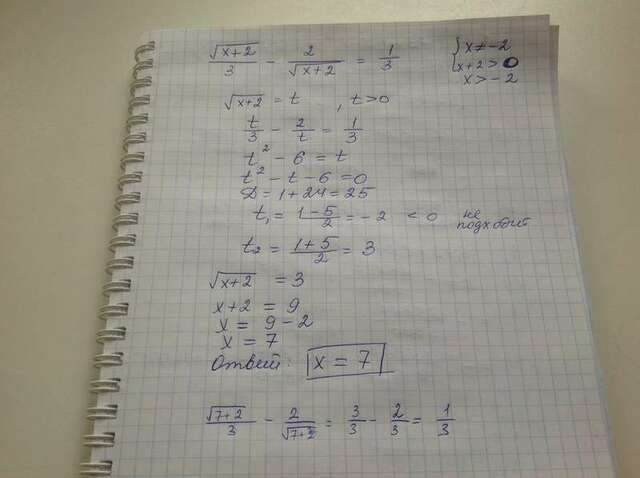 √(x+2)/3 - 2/√(x+2) = 1/3
{x ≠ -2
x+2 > 0
x > -2
√(x+2) = t , t>0
t/3 - 2/t = 1/3
t² - 6 = t
t² - t - 6 = 0
D = 1+24 = 25
t₁ = (1-5)/2 = -2 < 0 не подходит
t₂ = (1+5)/2 = 3
√(x+2) = 3
x+2 = 9
x = 9-2
x = 7
Ответ: x = 7
√(7+2)/3 - 2/√(7+2) = 3/3 - 2/3 = 1/3